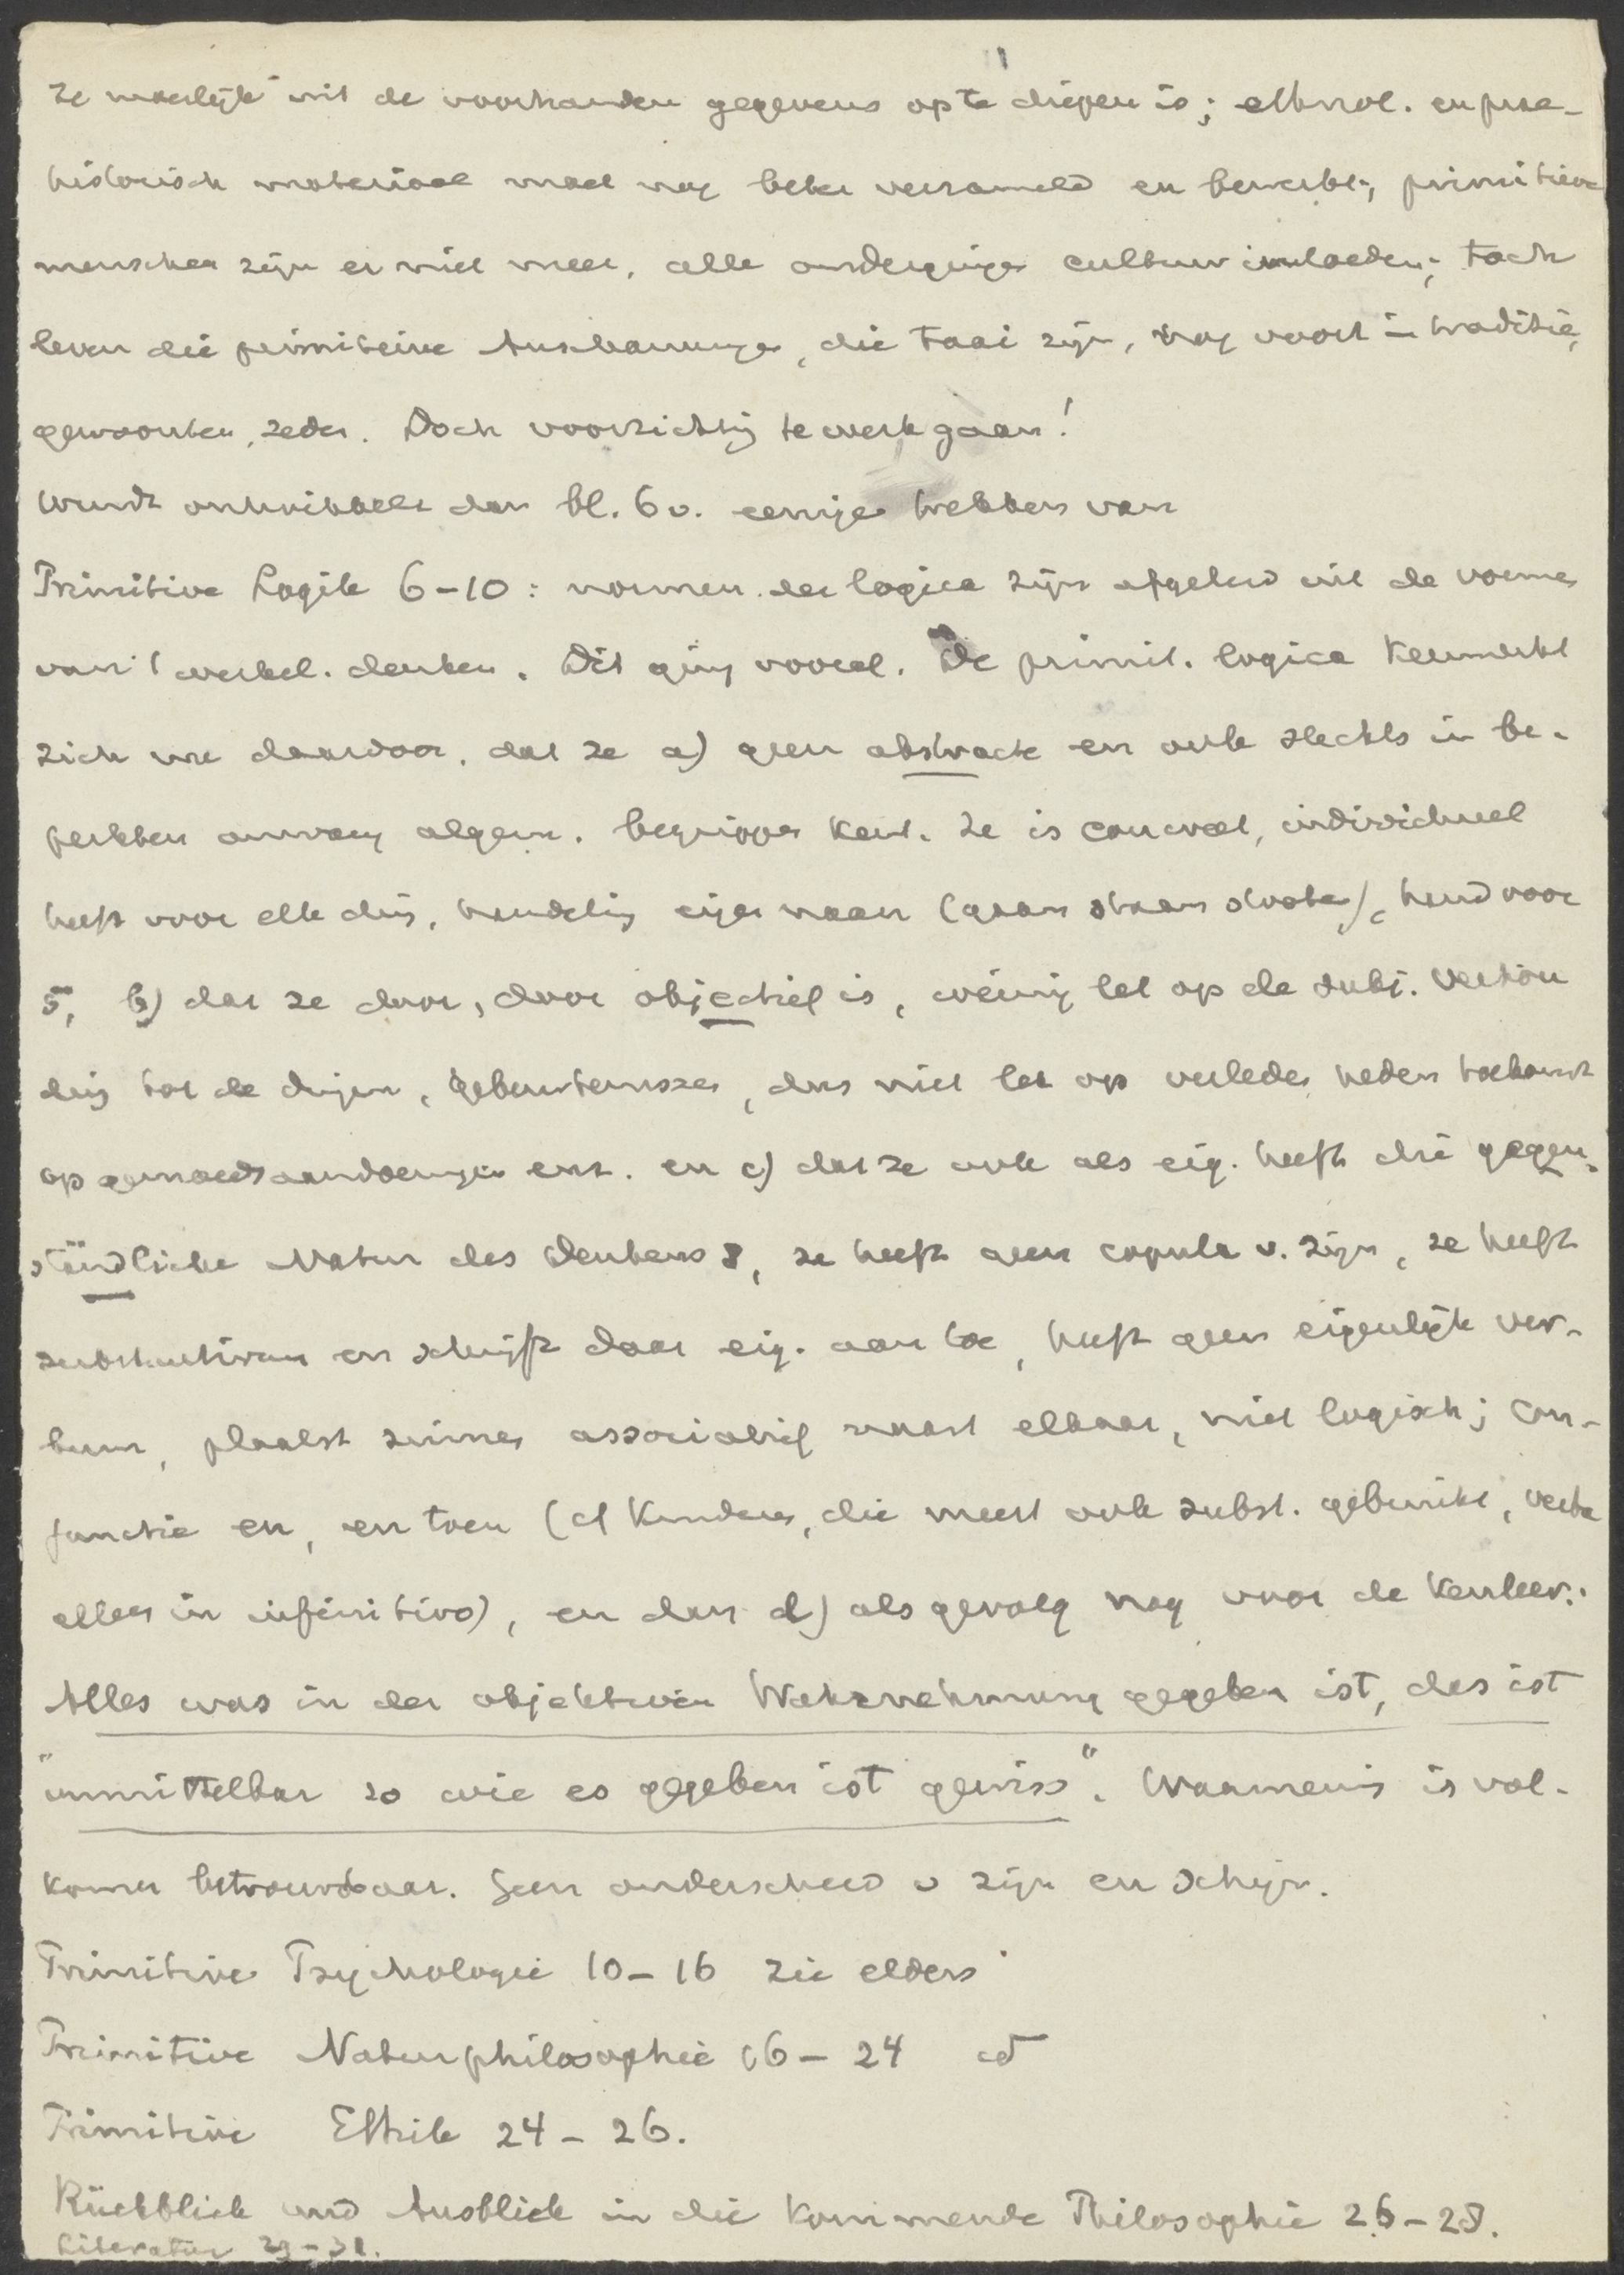 ze moeilijk uit de voorhanden gegevens op te diepen is; ethnol. en prae-
historisch materiaal moet nog beter verzameld en bewerkt; primitieve
menschen zijn er niet meer, alle ondergingen cultuurinvloeden; toch
leven die primitieve Anschauungen, die taai zijn, nog voort in traditie,
gewoonten, zeden. Doch voorzichtig te werk gaan!
Wundt ontwikkelt dan bl. 6 v. eenige trekken van
Primitive Logik 6-10: normen der logica zijn afgeleid uit de vormen
van 't werkel. denken. Dit ging vooraf. De primit. logica kenmerkt
zich nu daardoor, dat ze a) geen abstracte en ook slechts in be-
perkten omvang algem. begrippen kent. Ze is concreet, individueel
heeft voor elk ding, handeling eigen naam (gaan staan), hand voor
5, b) dat ze door, door objectief is, weinig let op de subj. verhou
ding tot de dingen, gebeurtenissen, dus niet let op verleden heden toekomst
op gemoedsaandoeningen enz. en c) dat ze ook als eig. heeft die gegen-
ständliche Natur des Denkens 8, ze heeft geen copula v. zijn, ze heeft
substantivum en schrijft daar eig. aan toe, heeft geen eigenlijk ver-
bum, plaatst zinnen associatief naast elkaar, niet logisch; con-
junctie en, en toen (cf kinderen, die meest ook subst. gebruikt, verba
alleen in infinitivo), en dan d) als gevolg nog voor de kenleer:
Alles was in der objektiven Wahrnehmung gegeben ist, das ist
"unmittelbar so wie es gegeben ist gewiss". Waarneming is vol-
komen betrouwbaar. Geen onderscheid v zijn en schijn.
Primitive Psychologie 10-16 zie elders
Primitive Naturphilosophie 16-24 id
Primitive Ethik 24-26.
Rückblick und Ausblick in die kommende Philosophie 26-28.
Literatur 29-31.